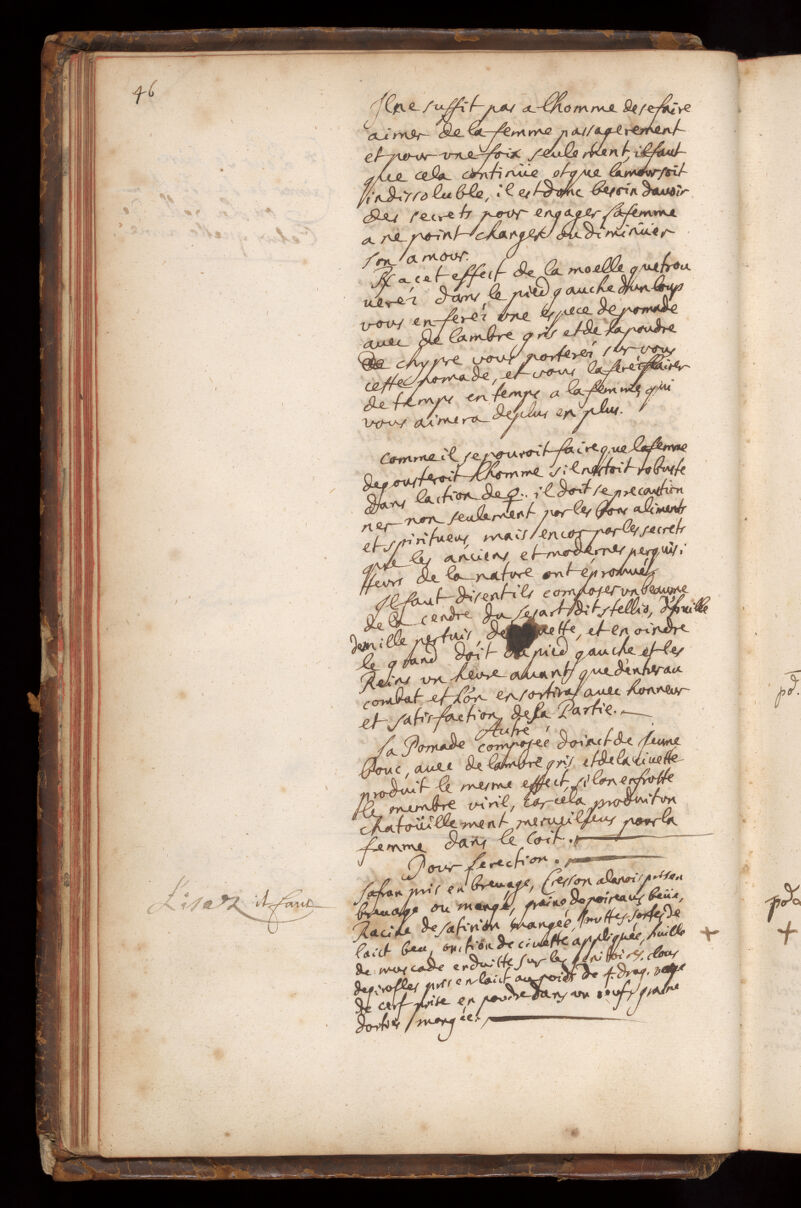 46
Il ne suffit pas a lhomme de se faire
aimer de la femme passagerement
et pour une foix seulement, il faut
que cela continüe et que lamour soit
indissoluble, il est donc besoin davoir
des secrets pour engager sa femme
a ne point changer ou diminüer
son amour.
a cet effect de la moelle que trou
uerez dans le pied gauche dun loup
vous en ferez une espece de pomade
auec de lambre gris et de la poudre
de chypre vous porterez sur vous
cette pomade, et vous la ferez flairer
de temps en temps a la femme qui
vous aimera de plus en plus.
comme il se pouroit faire que la femme
degousteroit lhomme sil nestoit robuste
dans laction de ♀. il doit se precaution
ner non seulement par les bons aliments
et spiritueux mais encor par les secrets
que les anciens et modernes perquisi
teurs de la nature ont éprouué
Il faut disent ils composer un beaume
de la cendre du Lesart dit stellio, dhuille
de mille pertuis, de uette, et en oindre
le grand doit du pied gauche et les
Reins un heure auant que dentrer au
combat et lón en sortira auec honneur
et satisfaction de la Partie.
Autre
La Pomade composée doinct de jeune
bouc, auec de lambre gris, et de la ciuette
produit le mesme effect, si lon en frotte
le membre viril, car cela produit un
chatoüillement merueilleux pour la
femme dans le Coit.
Pour l'erection.
safran pris en breuage, Cresson alanois
breuage ou mangé, graine de poireaux beüe,
Racine de satirion mangée, de
laict beu, onction de ciuette appliquée, huille
de muscade enduitte sur les genitoires, clous
de girofles pris en laict au poids de 4. drag.
de cerf prise en poudre dans un oeuf, graine
dorties mangée.
Lisaz
+